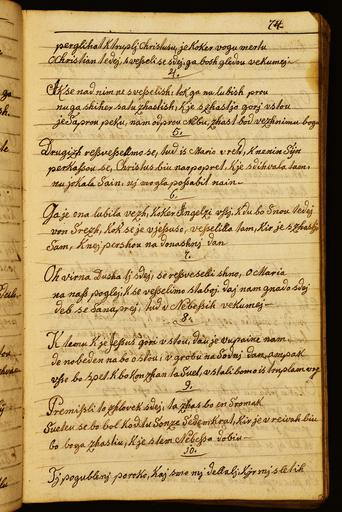 74.
perglihat K truplj Christusu, je Koker vogu mertu
O Christian tedej, s veseli se sdej, ga bosh gledou vekumej.
4.
Ak se nad nim ne sveselish: tok ga na lubish prou
nu ga shiher satu zhastish, K je s zhastjo gorj vstou
je Saprou peku, nam odprou Nebu, zhast bod vezhnimu bogu
5.
Drugizh resveselimo se, tud is Maria vred, K nemin Syn
perkasou se, Christus biu narpopret, K je sdihvala tam,
nu jokala Sam, nj mogla posabit nam
6.
Ga je ona lubila vezh, Koker Angelzi vsi, K du bo Snou tedej
von Srezh, Kok se je vjesusu, veselila tam, Kir je s zhastjo
Sam, K nej pershou na donashnj dan
7.
Oh virna Dusha tj sdej, se resveseli shno, O Maria
na nas poglej, K se veselimo staboj, daj nam gnado sdej
deb se Sanuprej, tud v Nebesih vekumej
8.
K temu K je Jesus gori vstou, dau je vupaine nam
de nobeden na bo ostou, v grobu na Sodnj dan, ampak
vsse bo spet K bo konzhan ta Suet, vstali bomo is truplam vred
9.
Premisli to zhlovek sdej, ta zhas bo en Sromak
Suetu se bo bol Koku Sonze Sedemkrat, Kir je vreivah biu
bo boga zhastiu, K je stem Nebesa dobiu
10.
Tj pogublenj poreko, Kaj smo mj dellalj, Kir mj sletih